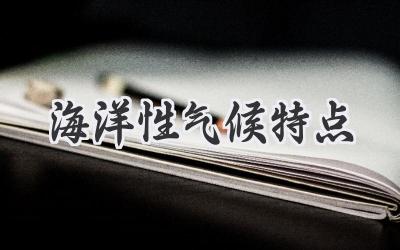 海洋性气候特点